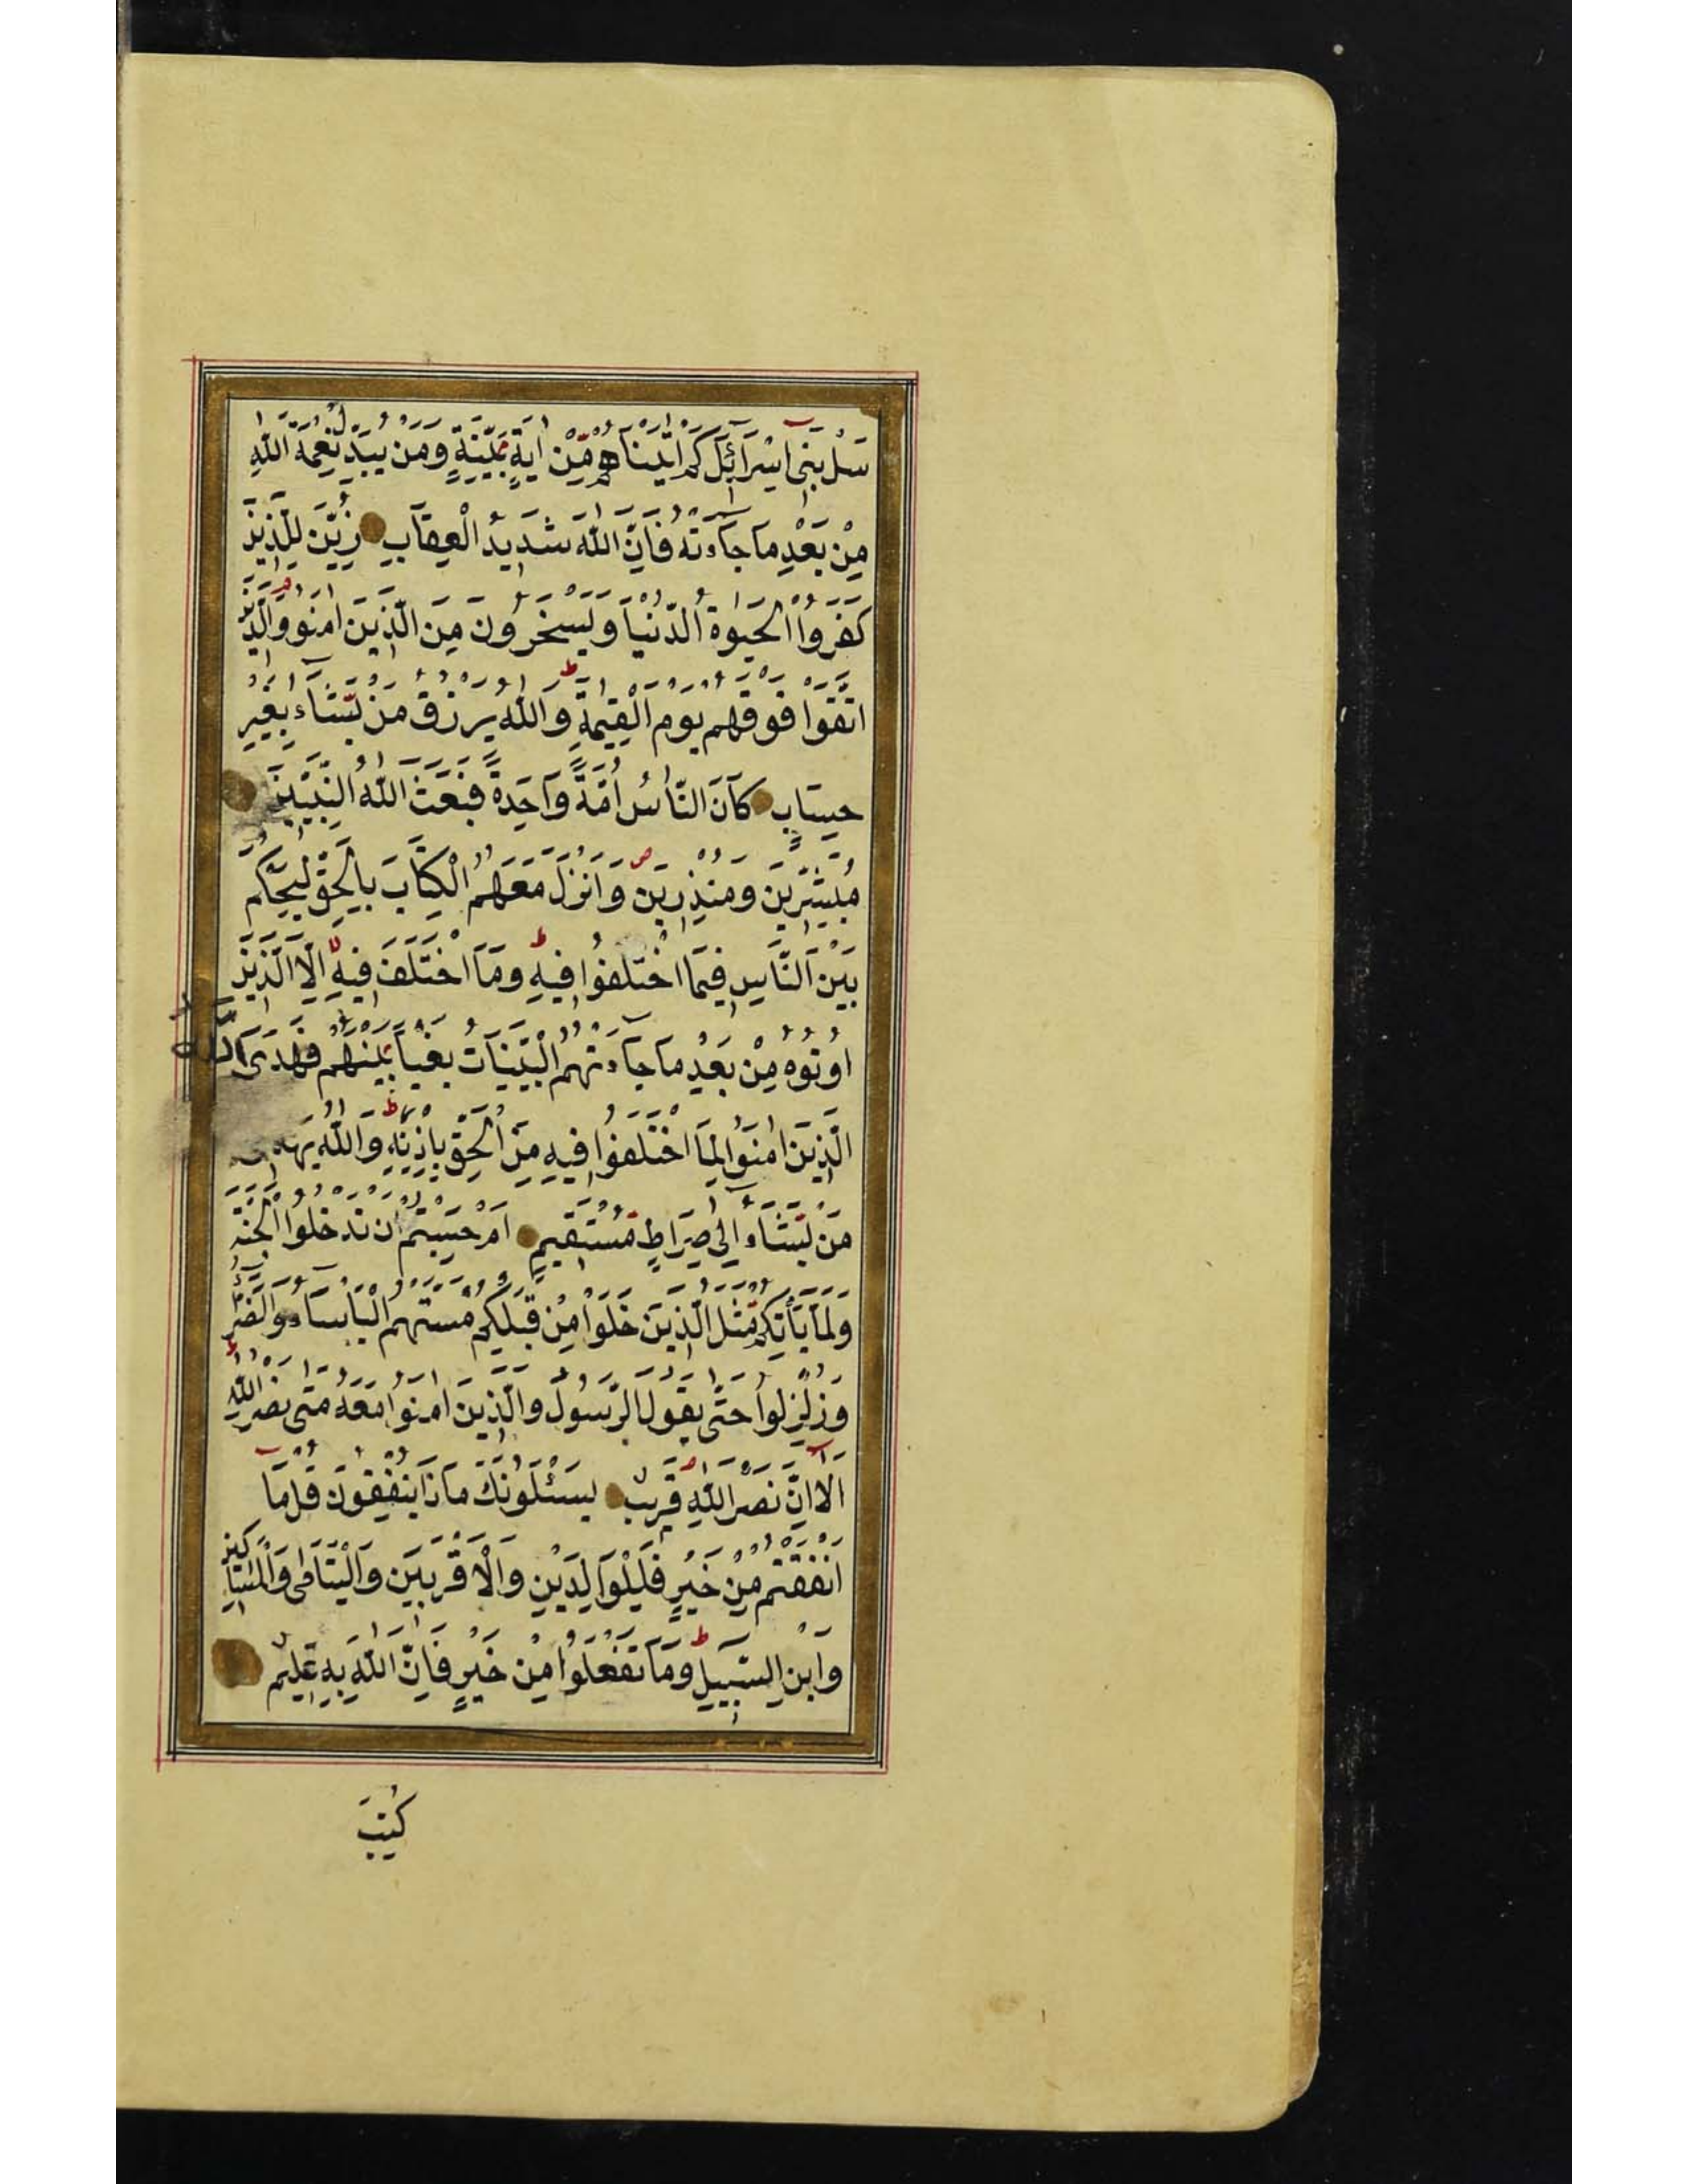 سَلْ بَنِىٓ اِسْرَآئِلَ كَمْ اٰتَيْنَاهُمْ مِّنْ اٰيَةٍ بَيِّنَةٍ وَمَنْ يُبَدِّلْ نِعْمَةَ اللّٰهِ
مِنْ بَعْدِ مَا جَآءَتْهُ فَاِنَّ اللّٰهَ شَدِيدُ الْعِقَابِ زُيِّنَ لِلَّذِينَ
كَفَرُوا الْحَيٰوةُ الدُّنْيَا وَيَسْخَرُونَ مِنَ الَّذِينَ اٰمَنُوا وَالَّذِينَ
اتَّقَوْا فَوْقَهُمْ يَوْمَ الْقِيٰمَةِ ط وَاللّٰهُ يَرْزُقُ مَنْ يَّشَآءُ بِغَيْرِ
حِسَابٍ كَانَ النَّاسُ اُمَّةً وَاحِدَةً فَبَعَثَ اللّٰهُ النَّبِيِّينَ
مُبَشِّرِينَ وَمُنْذِرِينَ ص وَاَنْزَلَ مَعَهُمُ الْكِتَابَ بِالْحَقِّ لِيَحْكُمَ
بَيْنَ النَّاسِ فِيمَا اخْتَلَفُوا فِيهِ ط وَمَا اخْتَلَفَ فِيهِ اِلَّا الَّذِينَ
اُوتُوهُ مِنْ بَعْدِ مَا جَآءَتْهُمُ الْبَيِّنَاتُ بَغْيًا بَيْنَهُمْ فَهَدَى اللّٰهُ
الَّذِينَ اٰمَنُوا لِمَا اخْتَلَفُوا فِيهِ مِنَ الْحَقِّ بِاِذْنِهِ ط وَاللّٰهُ يَهْدِى
مَنْ يَّشَآءُ اِلٰى صِرَاطٍ مُّسْتَقِيمٍ اَمْ حَسِبْتُمْ اَنْ تَدْخُلُوا الْجَنَّةَ
وَلَمَّا يَأْتِكُمْ مَّثَلُ الَّذِينَ خَلَوْا مِنْ قَبْلِكُمْ مَسَّتْهُمُ الْبَأْسَآءُ وَالضَّرَّآءُ
وَزُلْزِلُوا حَتّٰى يَقُولَ الرَّسُولُ وَالَّذِينَ اٰمَنُوا مَعَهُ مَتٰى نَصْرُ اللّٰهِ ط
اَلَآ اِنَّ نَصْرَ اللّٰهِ قَرِيبٌ يَسْئَلُونَكَ مَاذَا يُنْفِقُونَ قُلْ مَآ
اَنْفَقْتُمْ مِنْ خَيْرٍ فَلِلْوَالِدَيْنِ وَالْاَقْرَبِينَ وَالْيَتَامٰى وَالْمَسَاكِينِ
وَابْنِ السَّبِيلِ ط وَمَا تَفْعَلُوا مِنْ خَيْرٍ فَاِنَّ اللّٰهَ بِهِ عَلِيمٌ
كُتِبَ